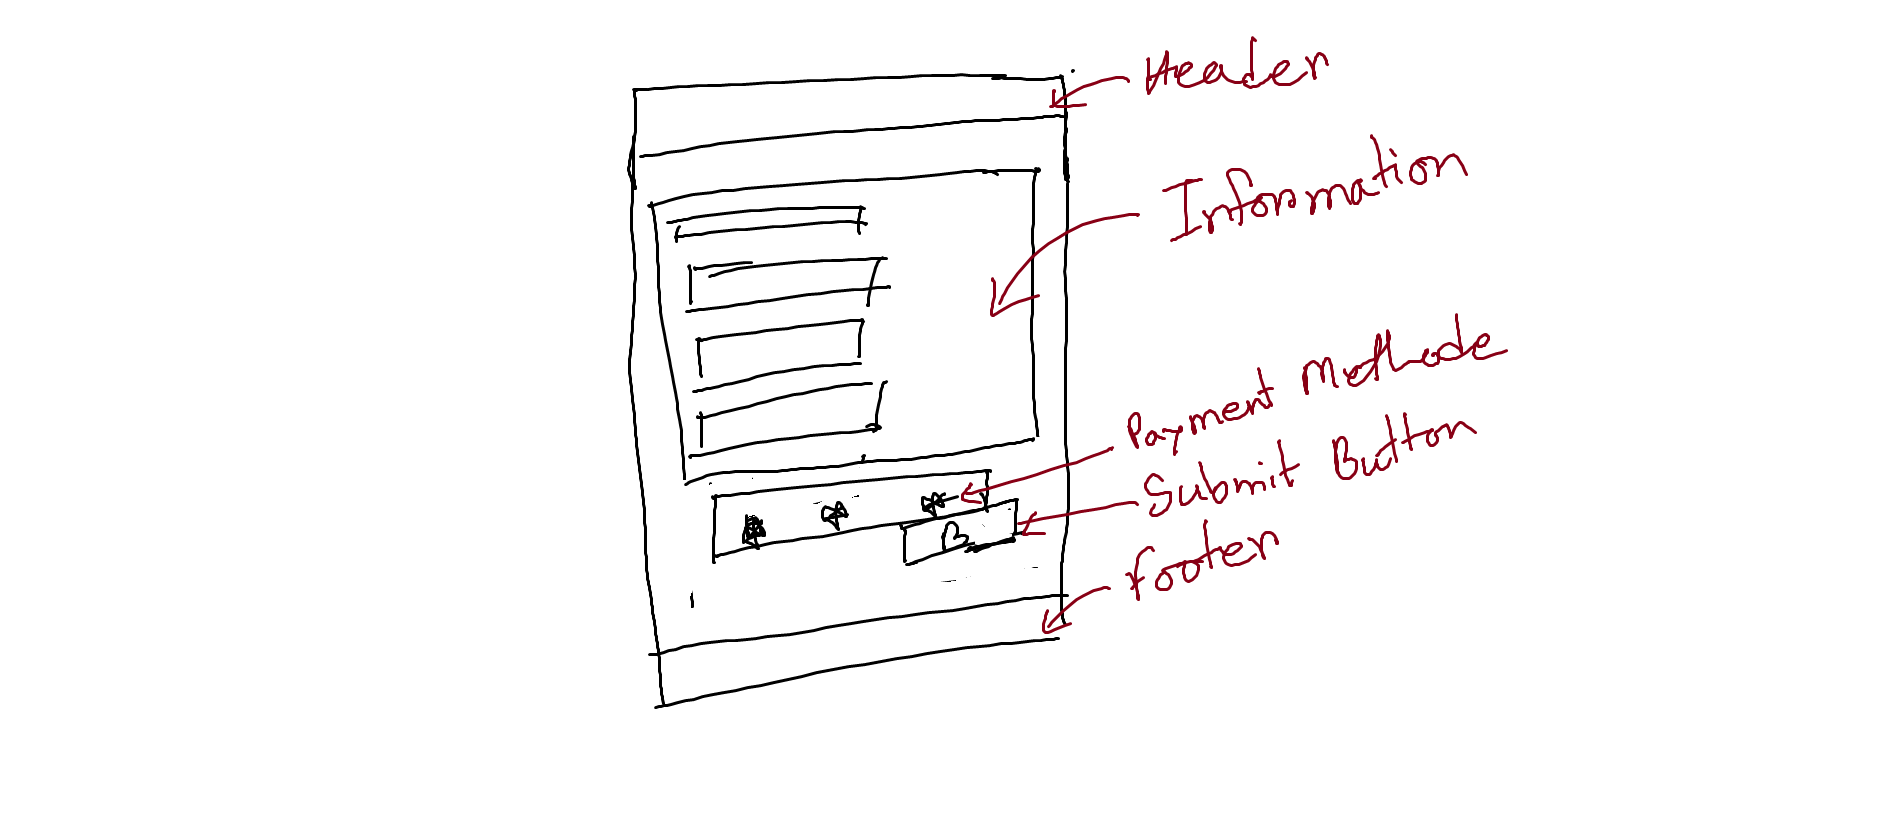 Header
Information
Payment Methode
Submit Button
footer
B